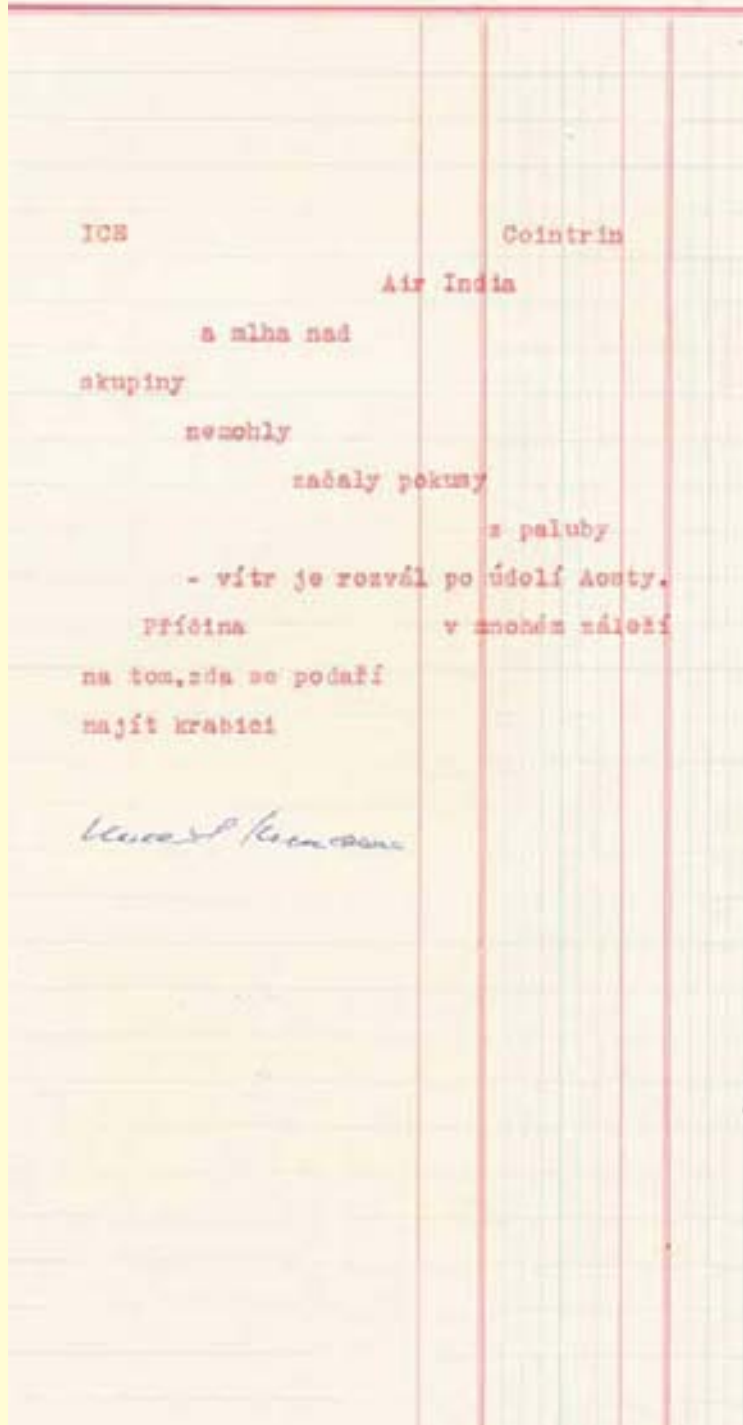 ICE Cointrin
Air India
a mlha nad
skupiny
nemohly
začaly pokusy
z paluby
- vítr je rozvál po údolí Aosty.
Příčina v mnohém záleží
na tom,zda se podaří
najít krabici